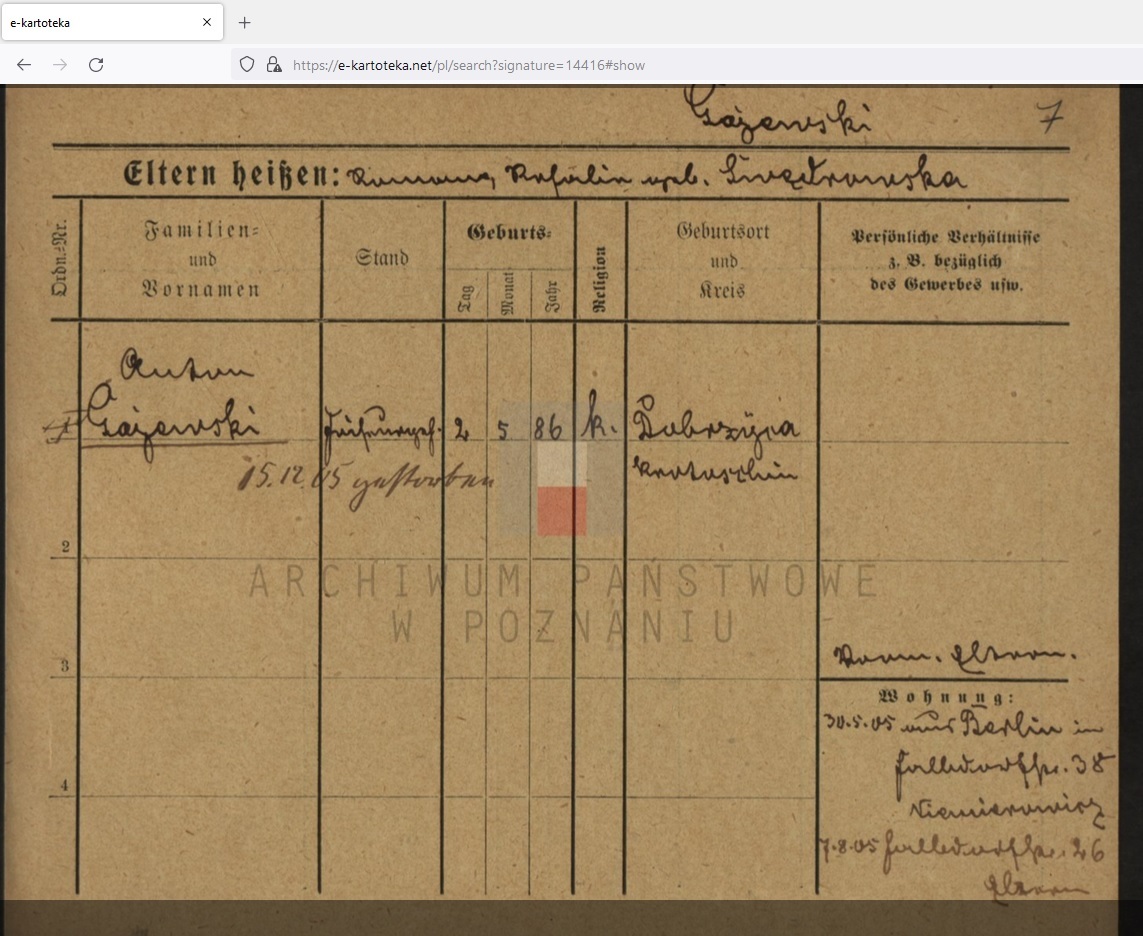 e-kartoteka
https://e-kartoteka.net/pl/search?signature=14416#show
Gajewski 7
Eltern heißen: geb.
Ordn.-Nr.
Familien-
und
Vornamen
Stand
Geburts-
Tag
Monat
Jahr
Religion
Geburtsort
und
Kreis
Persönliche Verhältnisse
z. B. bezüglich
des Gewerbes usw.
Anton
Gajewski 2 5 86 k. Dobrzyca
Krotoschin
15.12.05 gestorben
2
ARCHIWUM PAŃSTWOWE
W POZNANIU
3
Vorm. Eltern.
Wohnung:
30.5.05 aus Berlin in
38
4
Niemierowicz
7.8.05 26
Eltern